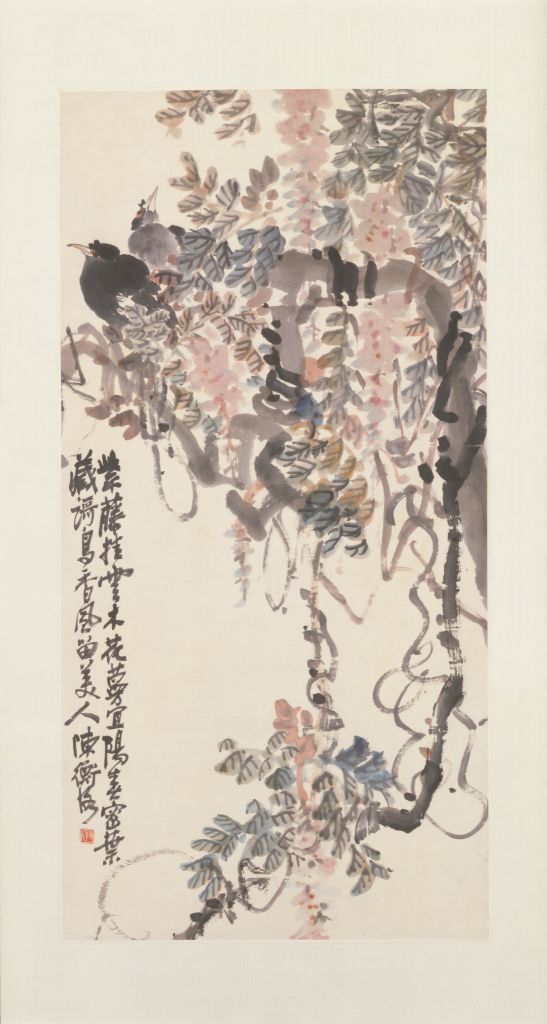 紫藤挂雲木花蔓宜陽春密葉
藏謌鳥香風留美人陳衡恪